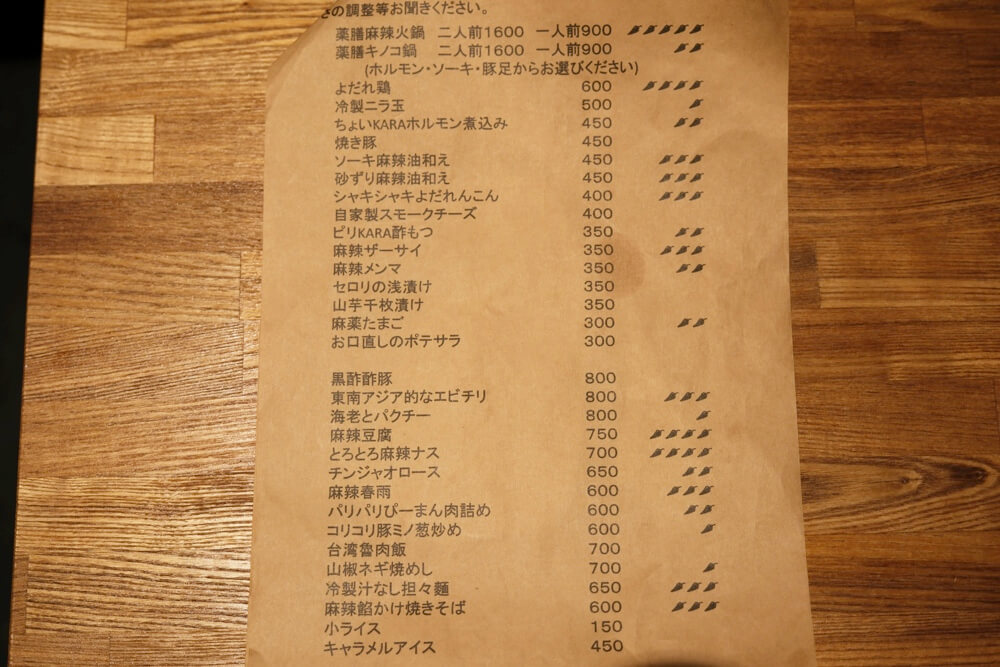 の調整等お聞きください。
薬膳麻辣火鍋 二人前1600 一人前900
薬膳キノコ鍋 二人前1600 一人前900
(ホルモン・ソーキ・豚足からお選びください)
よだれ鶏 600
冷製ニラ玉 500
ちょいKARAホルモン煮込み 450
焼き豚 450
ソーキ麻辣油和え 450
砂ずり麻辣油和え 450
シャキシャキよだれんこん 400
自家製スモークチーズ 400
ピリKARA酢もつ 350
麻辣ザーサイ 350
麻辣メンマ 350
セロリの浅漬け 350
山芋千枚漬け 350
麻薬たまご 300
お口直しのポテサラ 300
黒酢酢豚 800
東南アジア的なエビチリ 800
海老とパクチー 800
麻辣豆腐 750
とろとろ麻辣ナス 700
チンジャオロース 650
麻辣春雨 600
パリパリぴーまん肉詰め 600
コリコリ豚ミノ葱炒め 600
台湾魯肉飯 700
山椒ネギ焼めし 700
冷製汁なし担々麺 650
麻辣餡かけ焼きそば 600
小ライス 150
キャラメルアイス 450